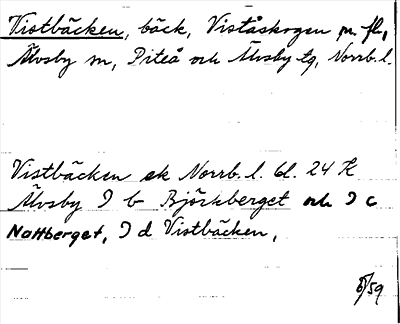 Vistbäcken, bäck, Viståskogen m. fl,
Älvsby sn, Piteå och Älvsby tg, Norrb. l.
Vistbäcken ek Norrb. l. bl. 24 K
Älvsby I b Björkberget och I c
Nattberget, I d Vistbäcken,
/59